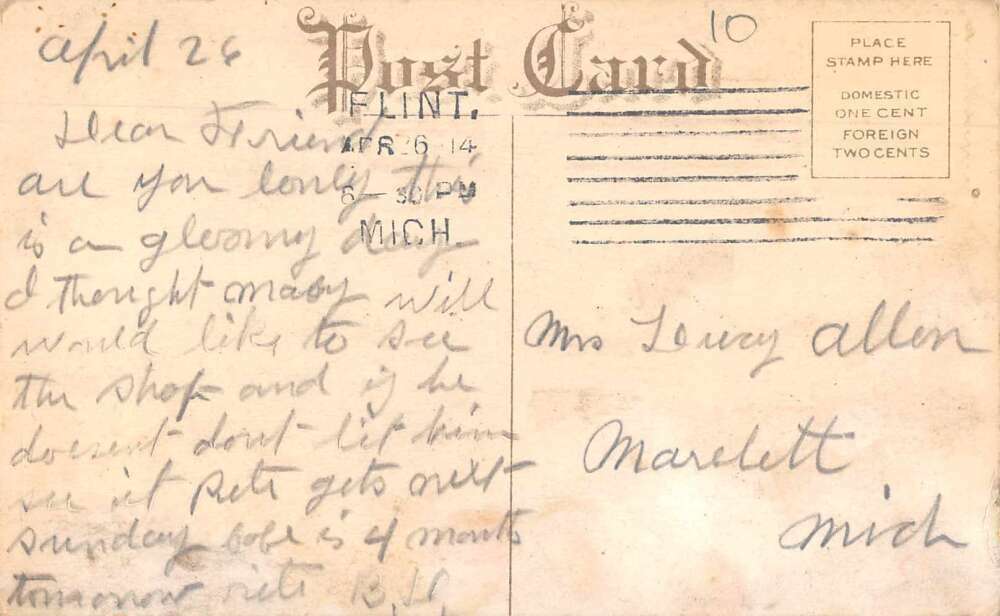 10
April 26
Post Card
PLACE
STAMP HERE
DOMESTIC
ONE CENT
FOREIGN
TWO CENTS
FLINT.
APR 26 14
6 - 30 PM
MICH
Dear Friend
are you lonly this
is a gloomy day
I thought will
would like to see
the shop and if he
doesent dont let him
see it Pete gets next
sunday babe is 4 months
tomorrow
Mrs Allen
Marelett
Mich